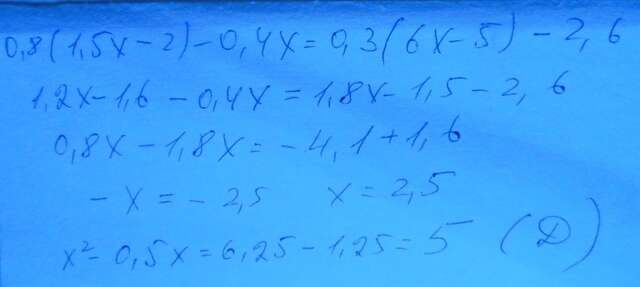 0,8(1,5x-2)-0,4x=0,3(6x-5)-2,6
1,2x-1,6-0,4x=1,8x-1,5-2,6
0,8x-1,8x=-4,1+1,6
-x=-2,5 x=2,5
x²-0,5x=6,25-1,25=5 (D)